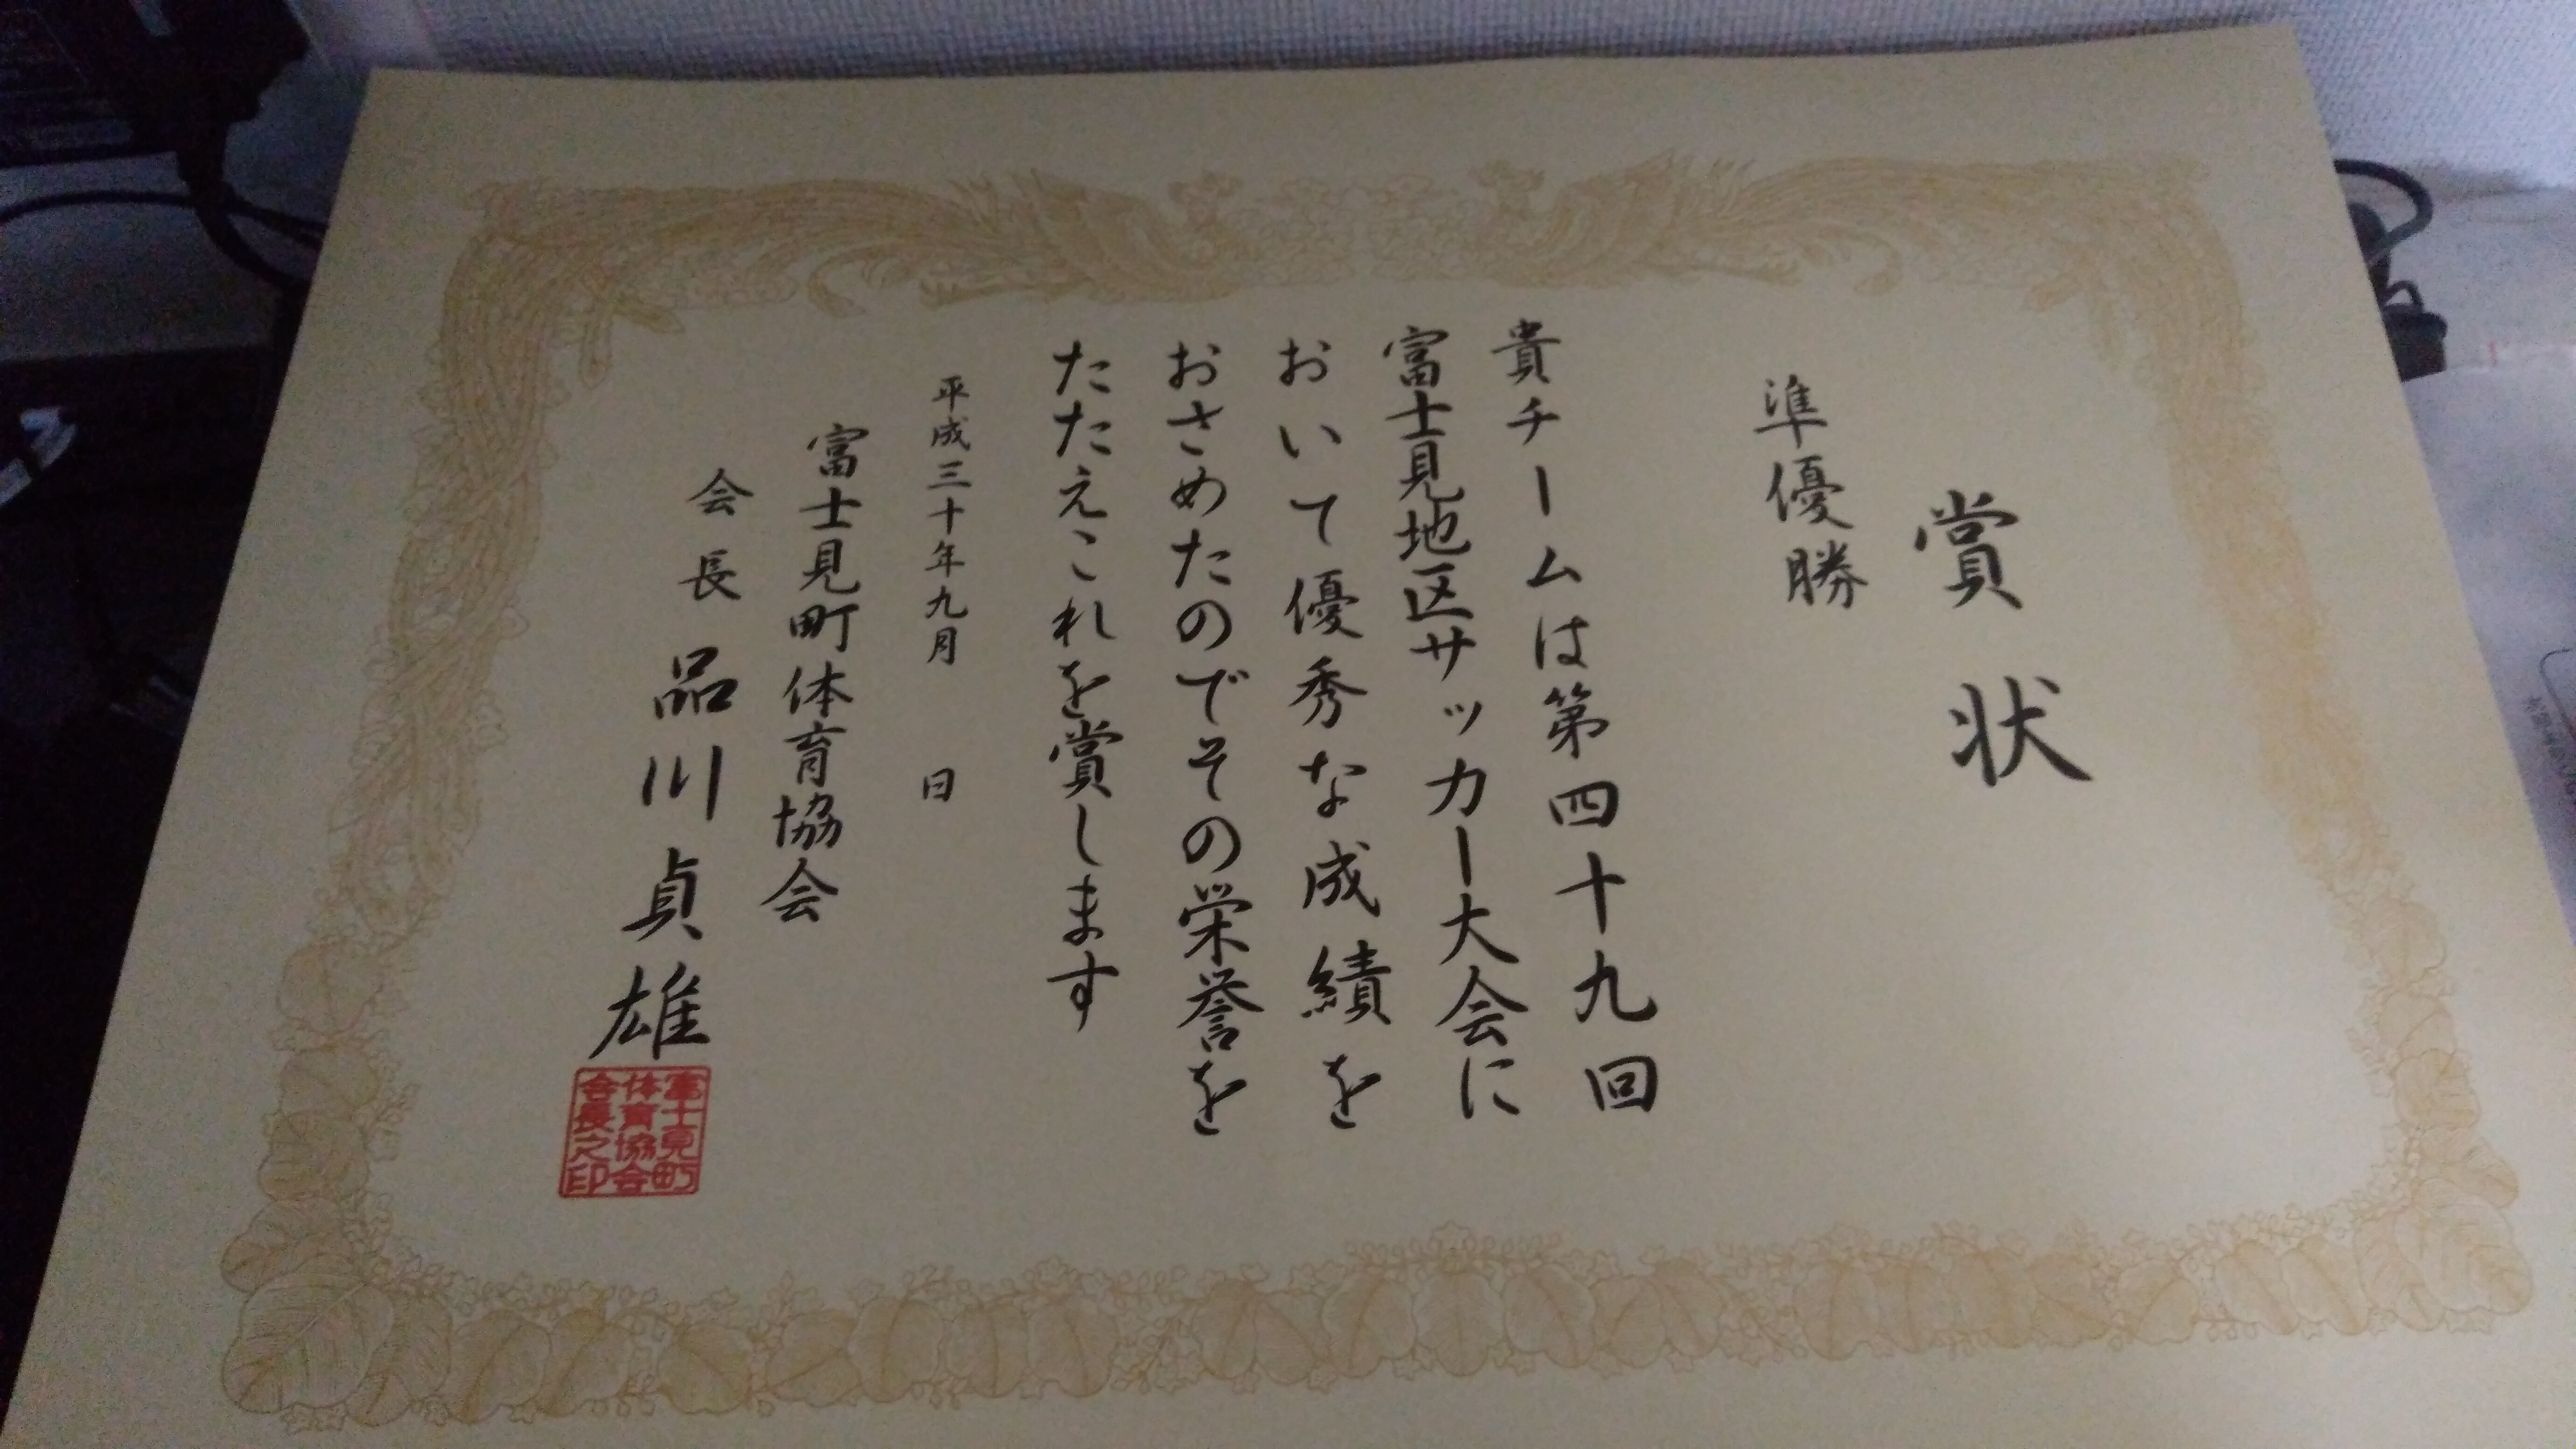 賞状
準優勝
貴チームは第四十九回
富士見地区サッカー大会に
おいて優秀な成績を
おさめたのでその栄誉を
たたえこれを賞します
平成三十年九月　日
富士見町体育協会
会長 品川貞雄
富士見町
体育協会
会長之印